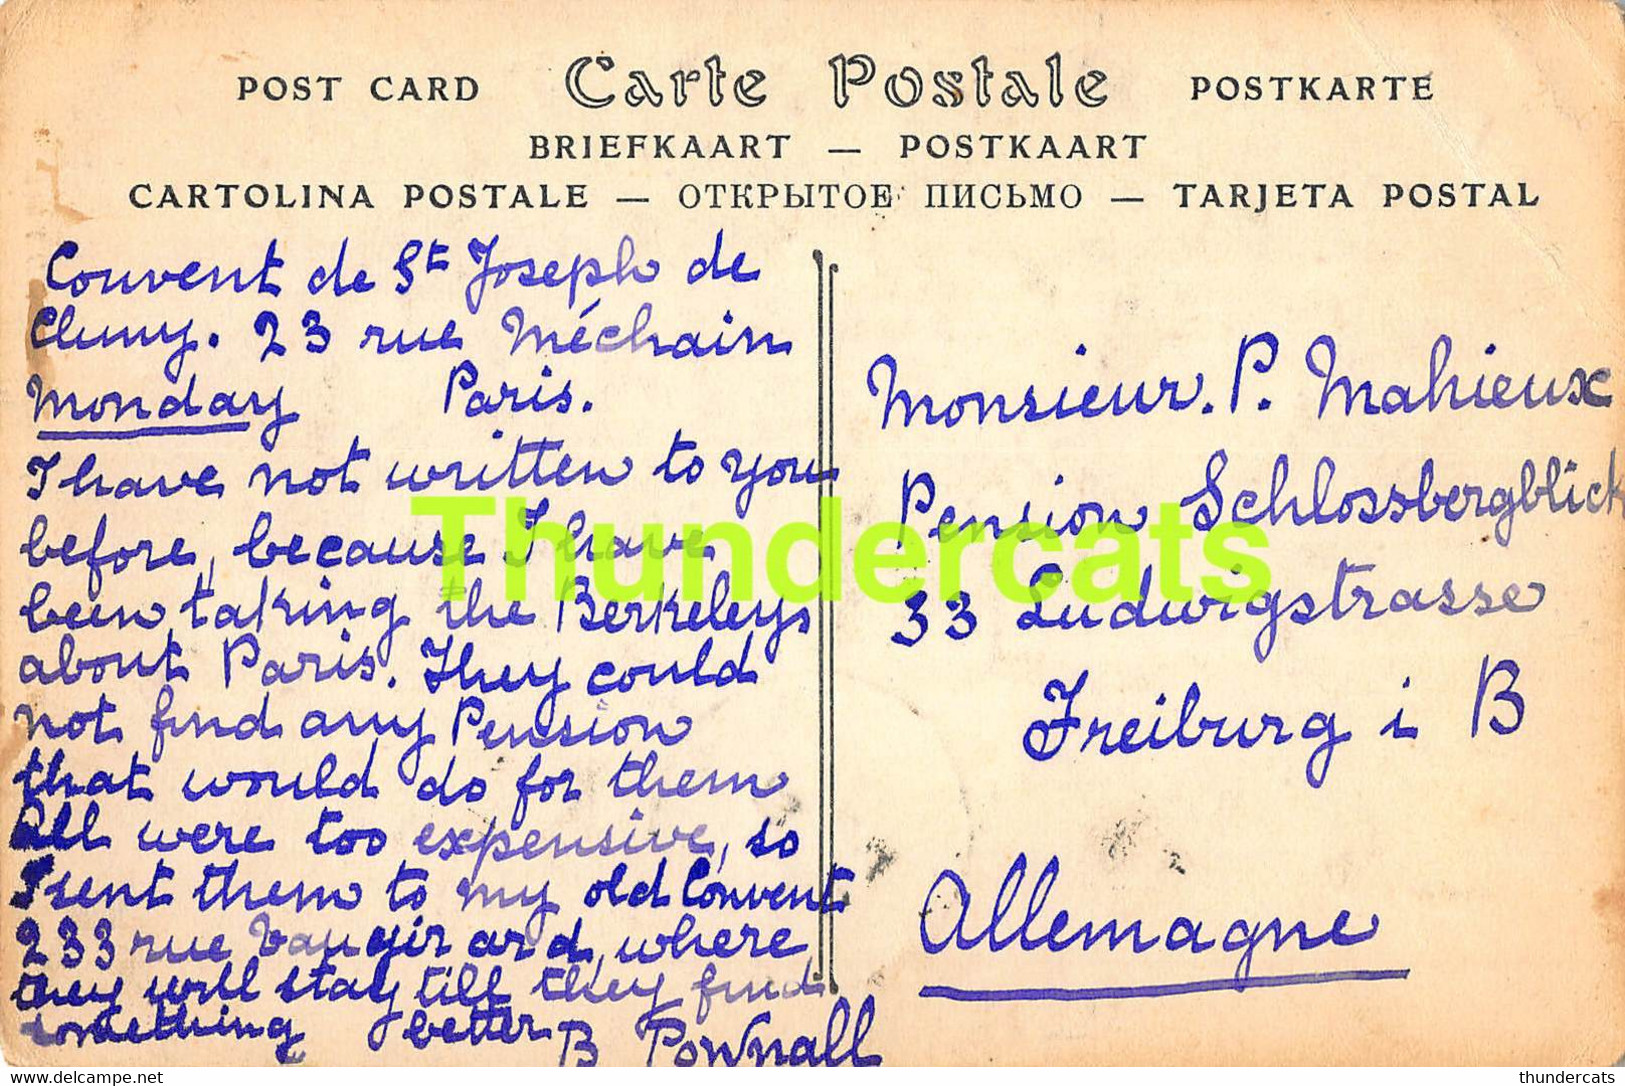 POST CARD Carte Postale POSTKARTE
BRIEFKAART — POSTKAART
CARTOLINA POSTALE — ОТКРЫТОЕ ПИСЬМО — TARJETA POSTAL
Couvent de St Joseph de
Cluny. 23 rue Méchain
Monday Paris.
I have not written to you
before, because I have
been taking the Berkeleys
about Paris. They could
not find any Pension
that would do for them
All were too expensive, so
I sent them to my old Convent
233 rue Vaugirard, where
they will stay till they find
something better B Pownall
Monsieur. P. Mahieux
Pension Schlossbergblick
33 Ludwigstrasse
Freiburg i B
Allemagne
Thundercats
www.delcampe.net
thundercats